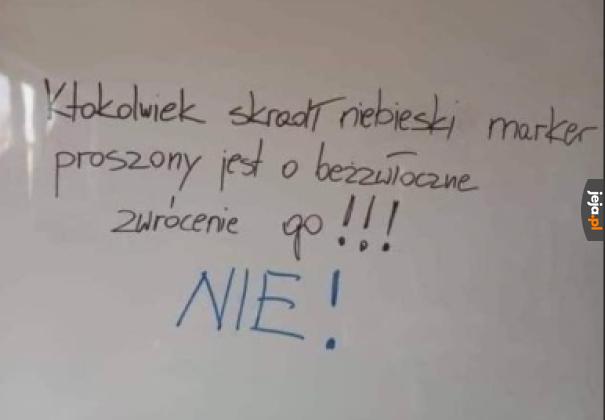 Ktokolwiek skradł niebieski marker
proszony jest o bezzwłoczne
zwrócenie go!!!
NIE!
jeja.pl